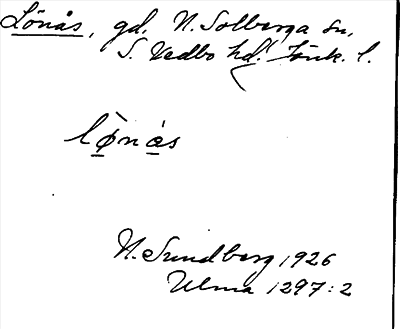 Lönås, gd. N. Solberga sn,
S. Vedbo hd. Jönk. l.
lö̀nás
N. Sundberg 1926
Ulma 1297:2